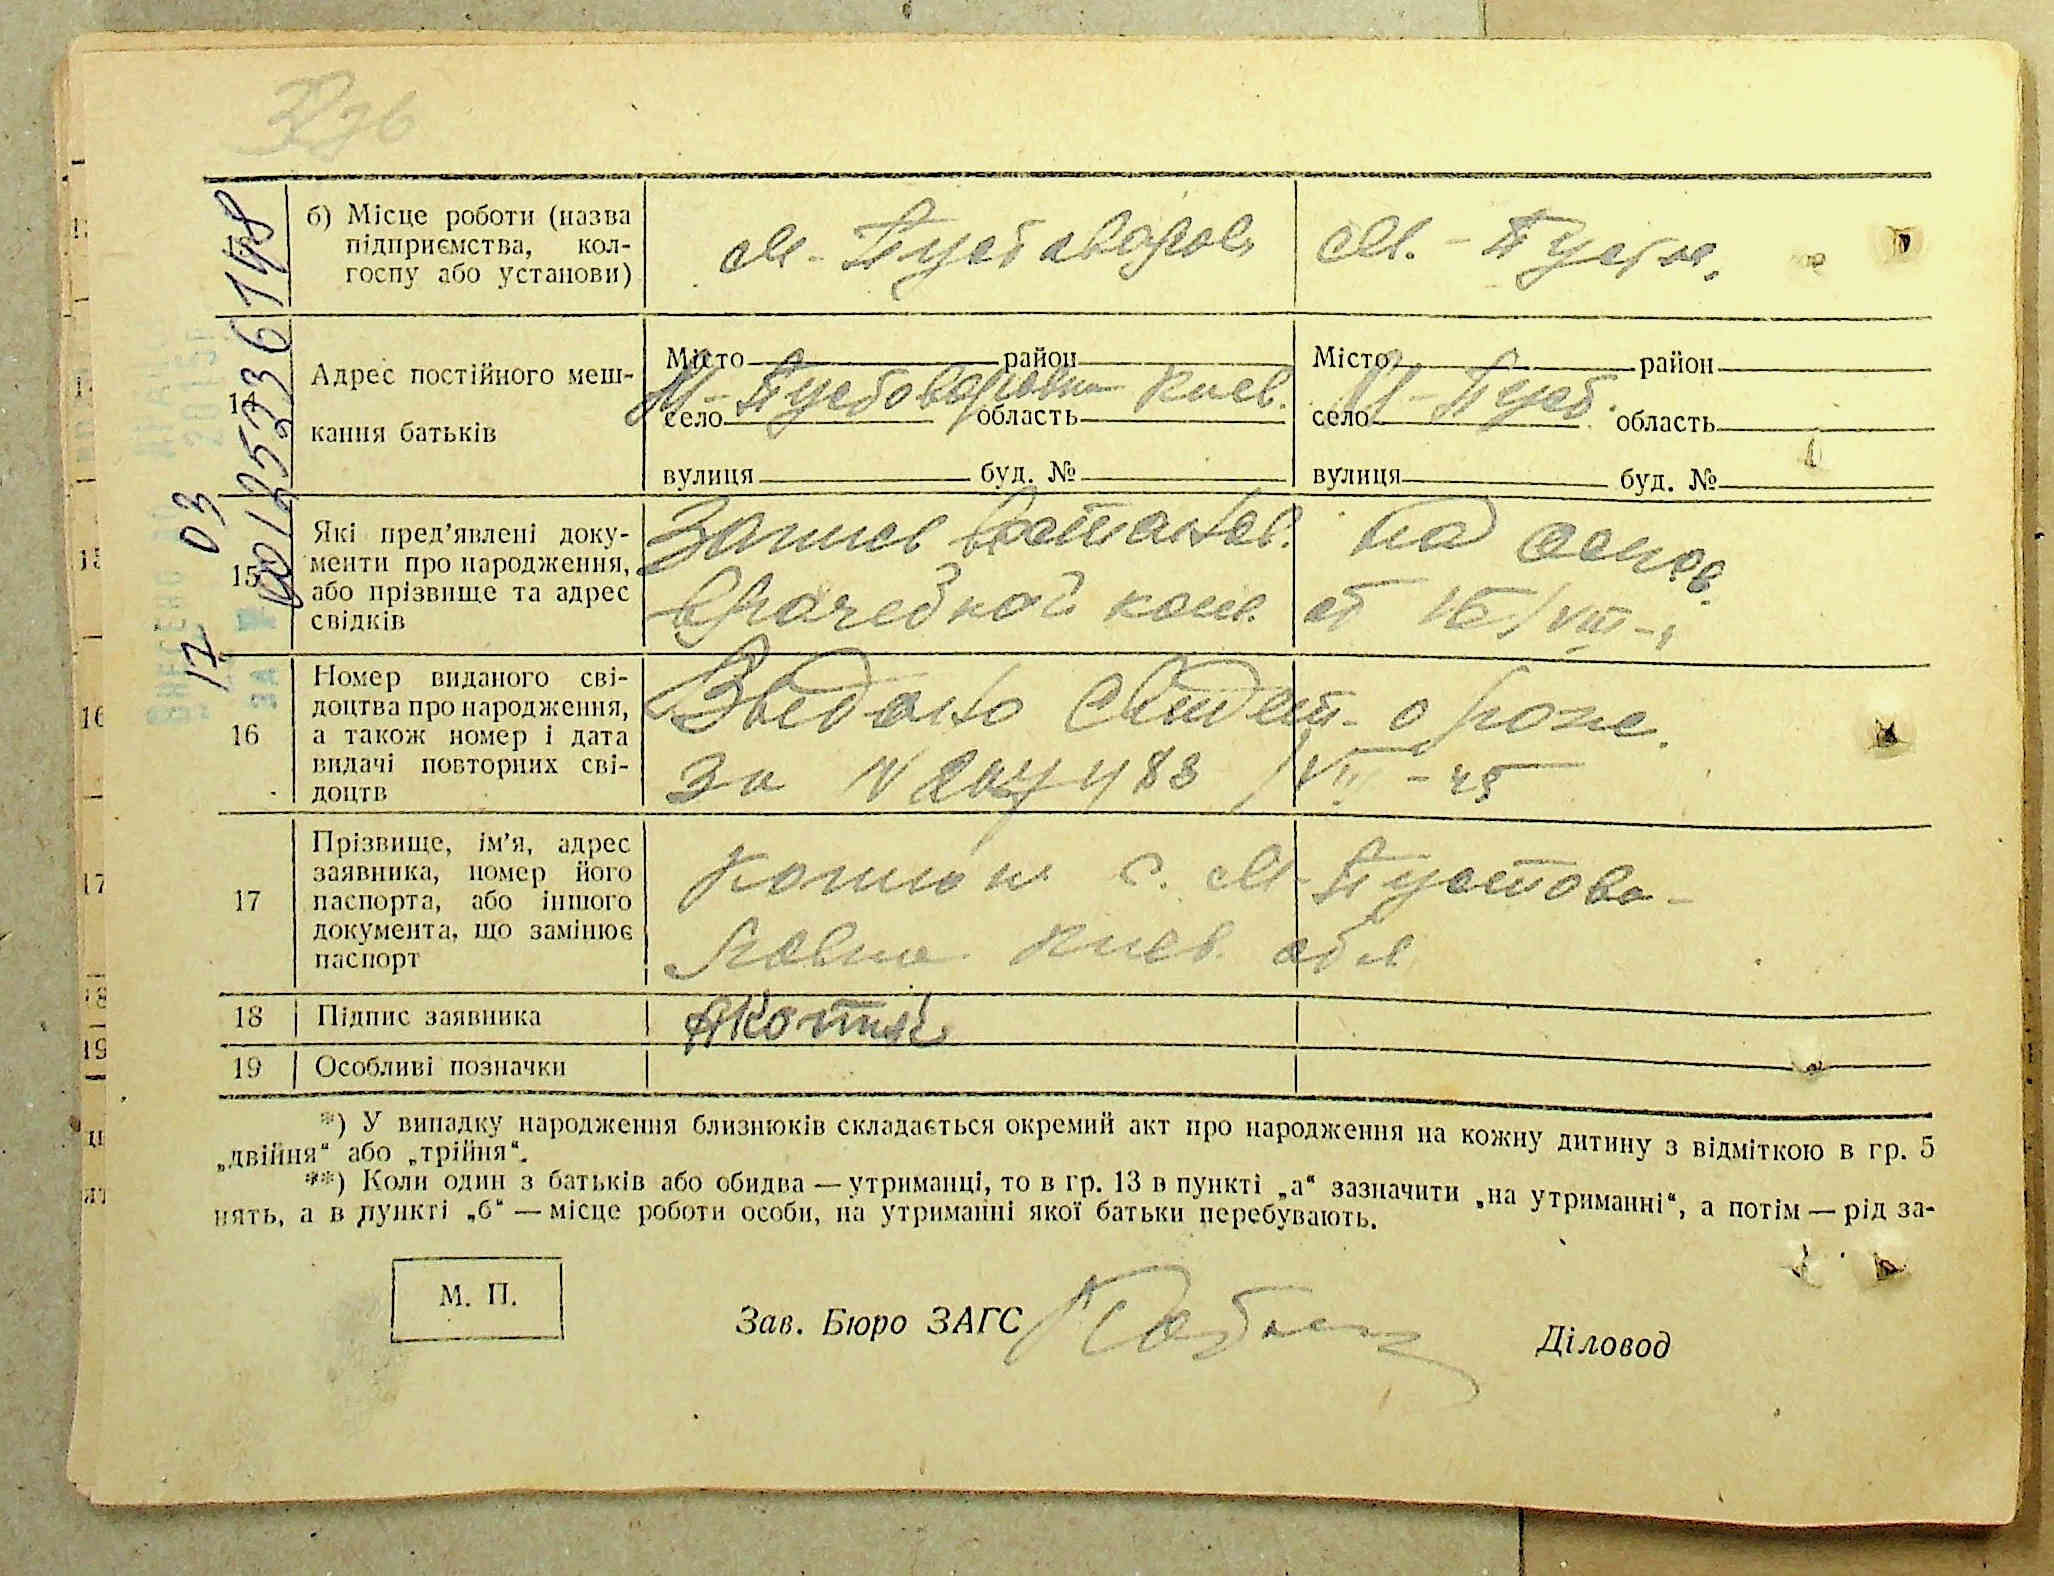 б) Місце роботи (назва
підприємства, кол-
госпу або установи)
М-Пустоваров М.-Пустов.
14
Адрес постійного меш-
кання батьків
Місто район Місто район
М-Пустоваровка Киев. М-Пуст.
село область село область
вулиця буд. № вулиця буд. №
15
Які пред'явлені доку-
менти про народження,
або прізвище та адрес
свідків
Запись восстанов. на основ.
врачебной ком. от
16
Номер виданого сві-
доцтва про народження,
а також номер і дата
видачі повторних сві-
доцтв
Выдано свидет. о рожд.
за N
17
Прізвище, ім'я, адрес
заявника, номер його
паспорта, або іншого
документа, що замінює
паспорт
с. М-Пустова-
ровка Киев. обл
18 Підпис заявника
19 Особливі позначки
*) У випадку народження близнюків складається окремий акт про народження на кожну дитину з відміткою в гр. 5
„двійня“ або „трійня“.
**) Коли один з батьків або обидва — утриманці, то в гр. 13 в пункті „а“ зазначити „на утриманні“, а потім — рід за-
нять, а в пункті „б“ — місце роботи особи, на утриманні якої батьки перебувають.
М. П.
Зав. Бюро ЗАГС Діловод
12 03
00125536148